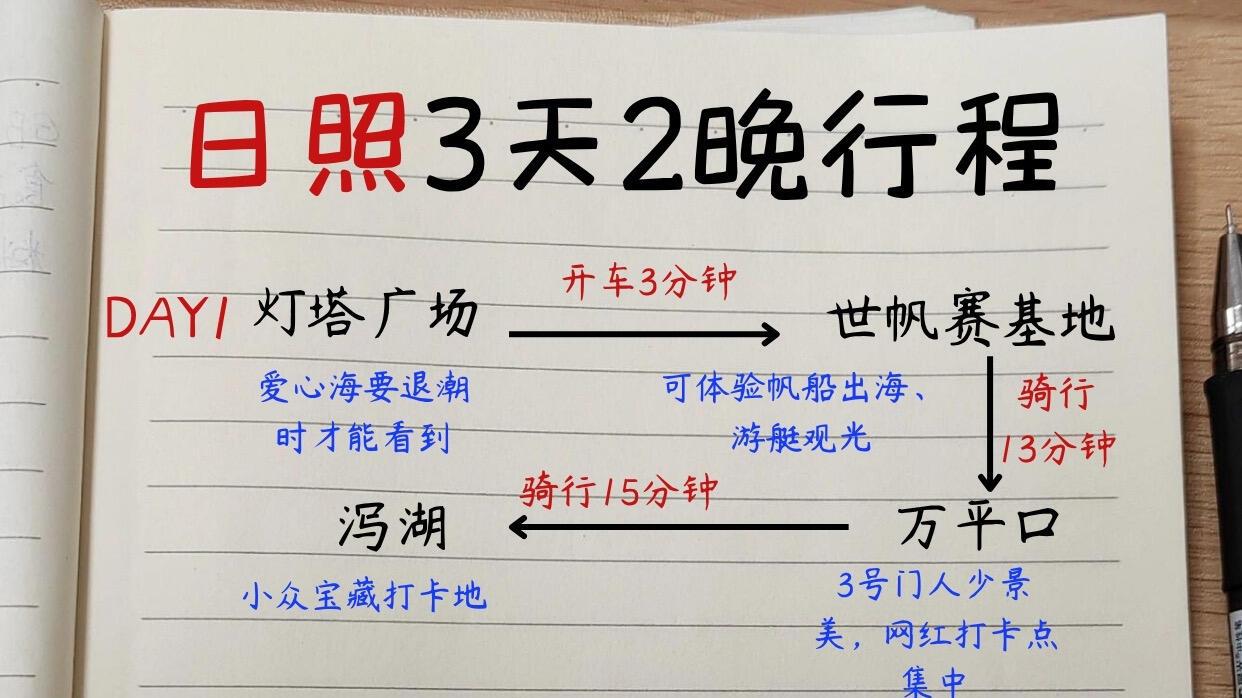 日照3天2晚行程
DAY1 灯塔广场 开车3分钟 世帆赛基地
爱心海要退潮
时才能看到
可体验帆船出海、
游艇观光
骑行
13分钟
万平口
3号门人少景
美，网红打卡点
集中
骑行15分钟
泻湖
小众宝藏打卡地